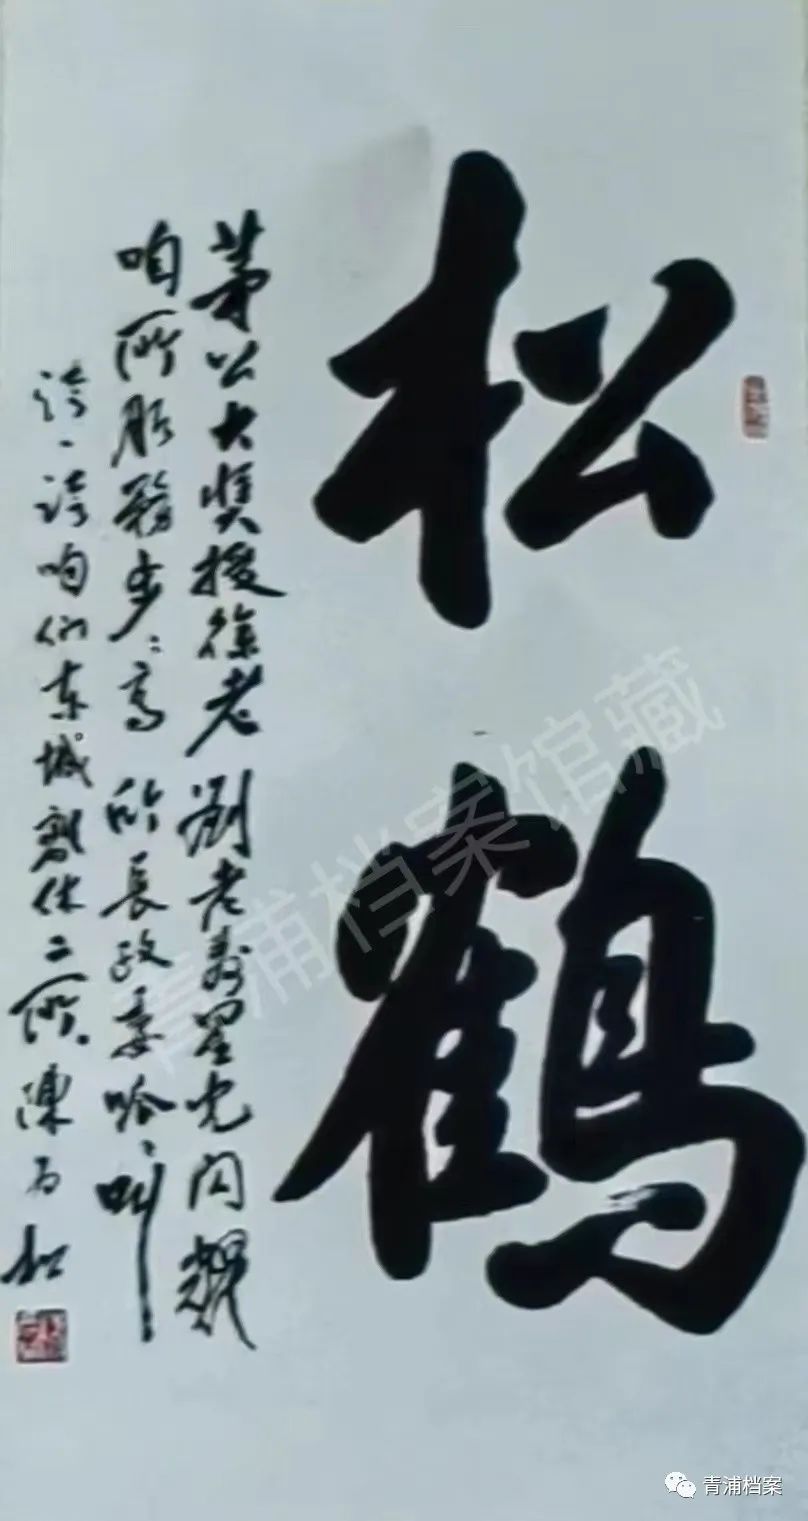 松鹤
茅公大奖授徐老 刘老寿星光闪耀
咱所服务步步高 所长政委哈哈叫
夸一夸咱们东城离休二所 陈
青浦档案馆藏
青浦档案